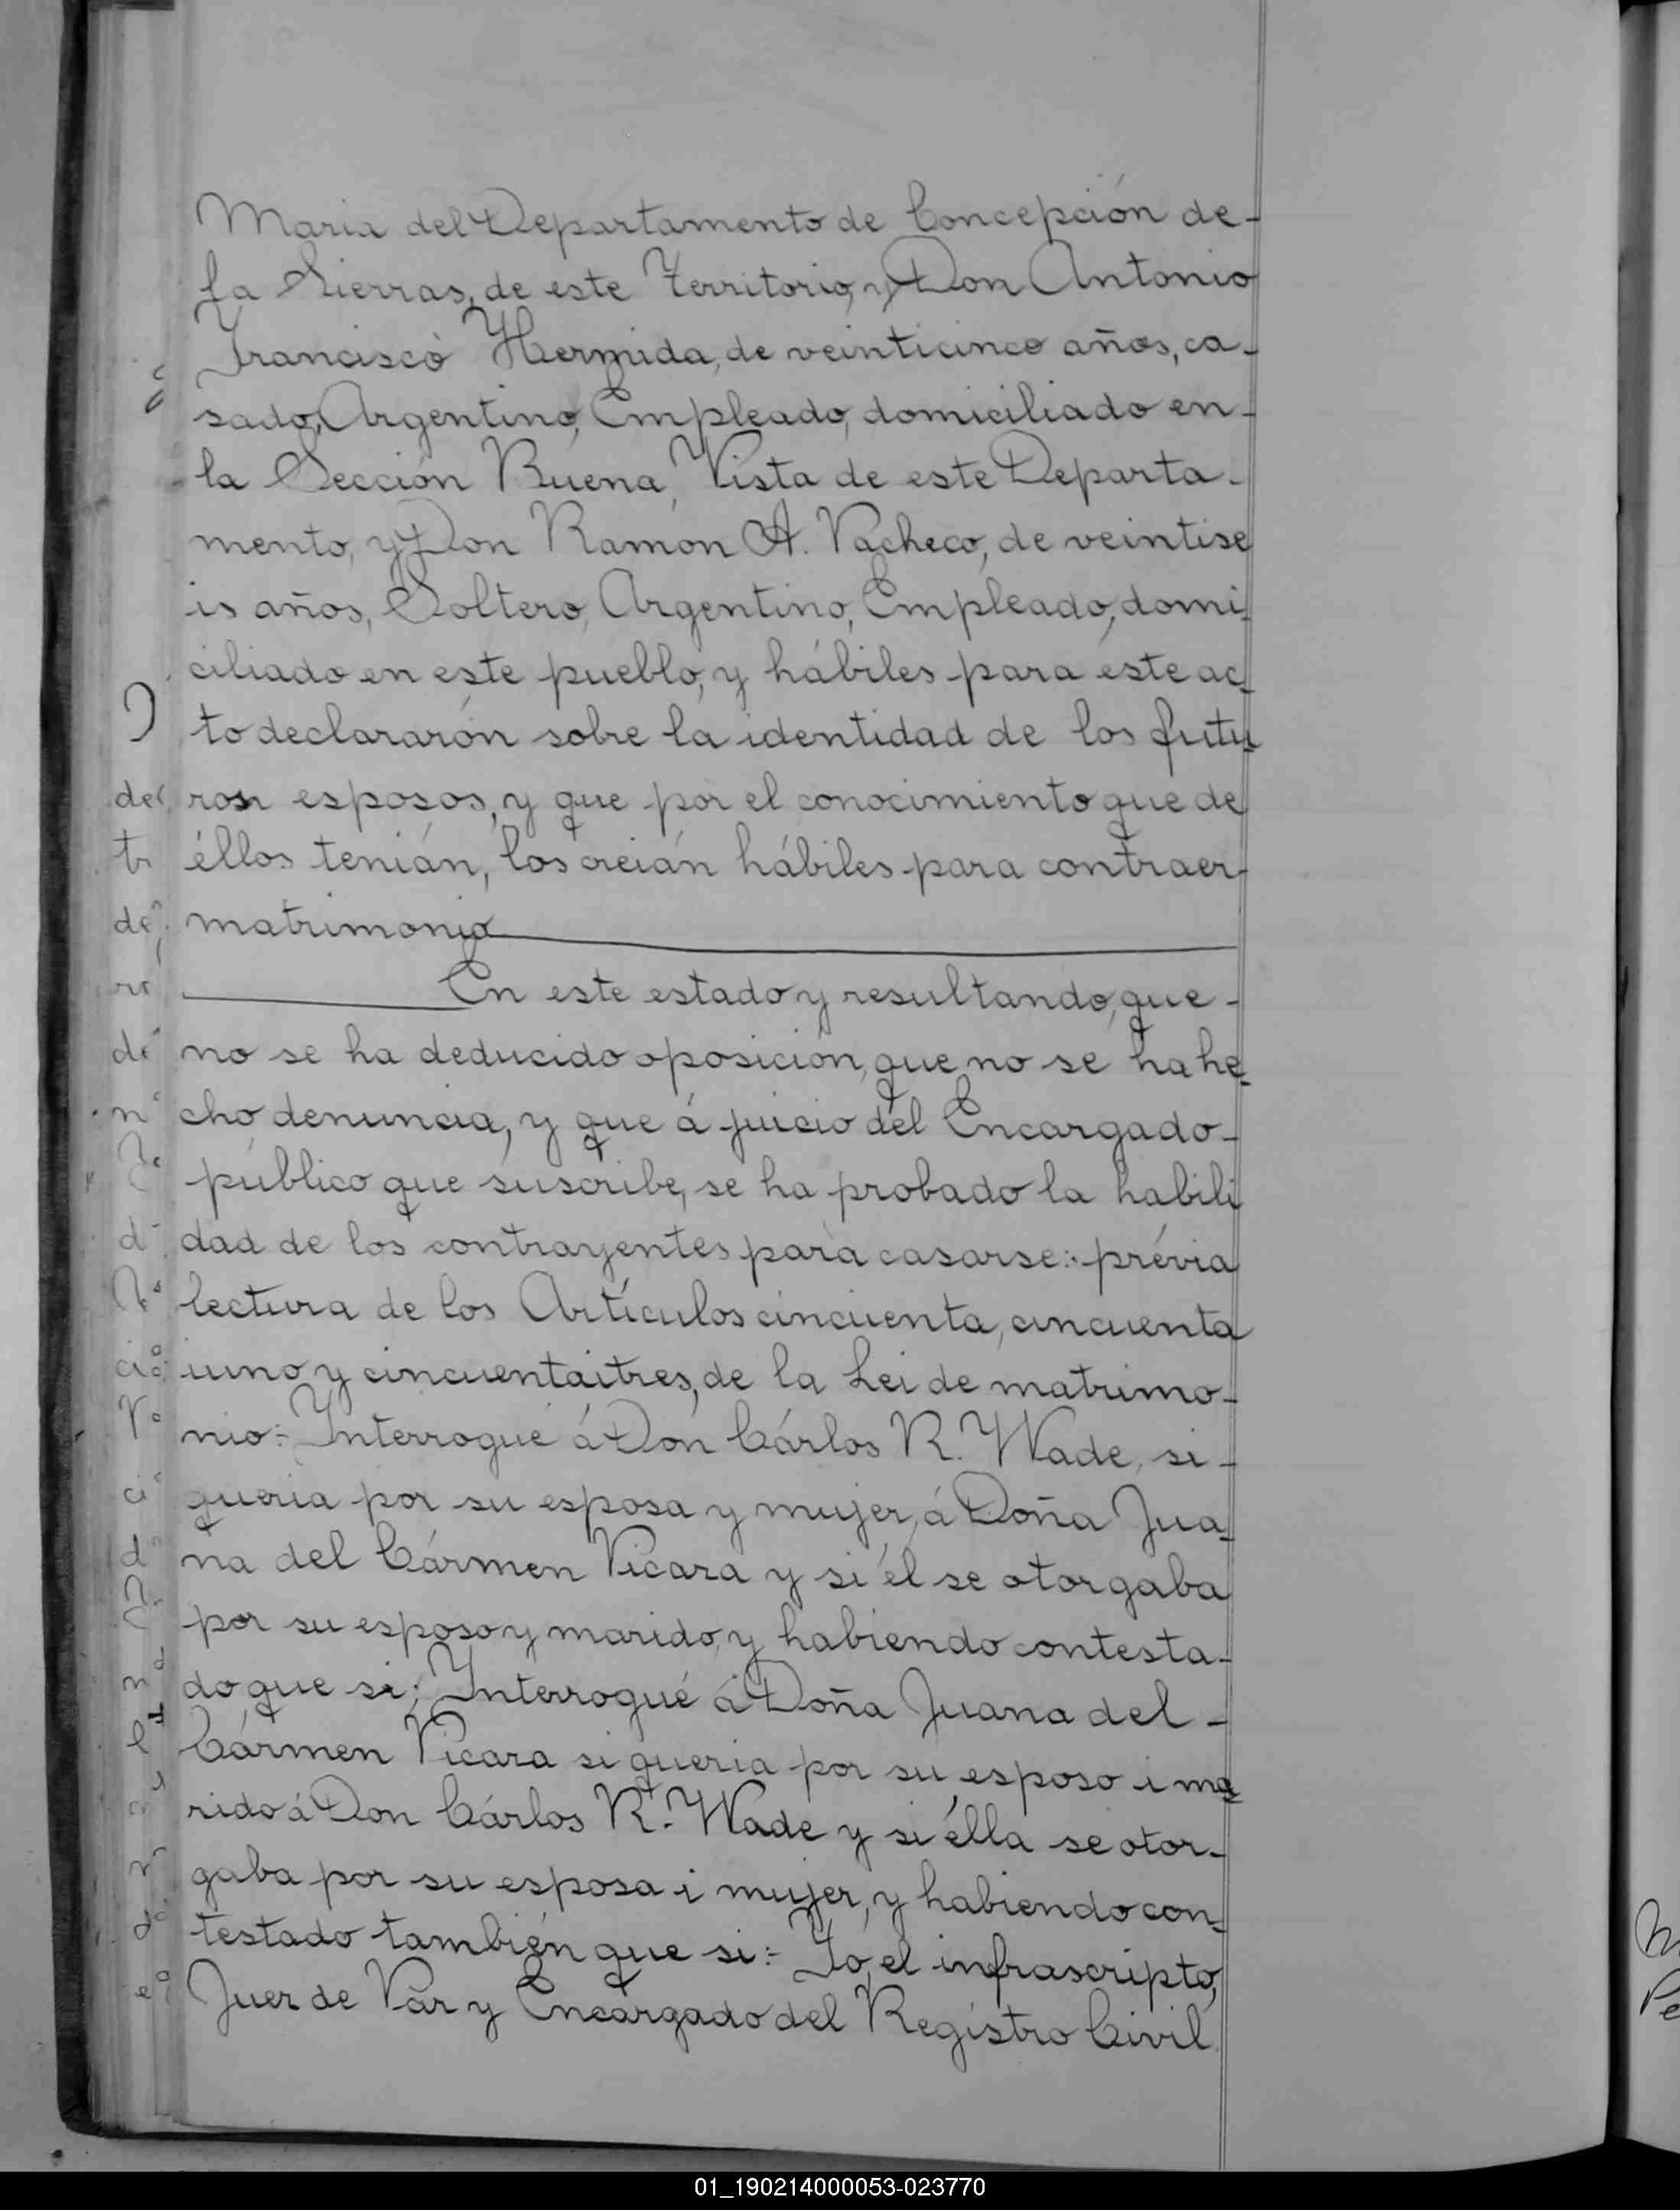 Maria del Departamento de Concepción de-
la Sierras, de este Territorio, y Don Antonio
Francisco Hermida, de veinticinco años, ca-
sado, Argentino, Empleado, domiciliado en-
la Sección Buena Vista de este Departa-
mento, y Don Ramón A. Pacheco, de veintise
is años, Soltero, Argentino, Empleado, domi-
ciliado en este pueblo, y hábiles para éste ac-
to declararón sobre la identidad de los futu-
ros esposos, y que por el conocimiento que de
éllos tenián, los creián hábiles para contraer-
matrimonio
En este estado y resultando, que-
no se ha deducido oposición, que no se ha he-
cho denuncia, y que á juicio del Encargado-
público que suscribe, se ha probado la habili
dad de los contrayentes para casarse:- prévia
lectura de los Artículos cincuenta, cincuenta
iuno y cincuentaitres, de la Lei de matrimo-
nio:- Interrogué á Don Cárlos R. Wade, si-
queria por su esposa y mujer, á Doña Jua-
na del Cármen Vicara y si él se otorgaba
por su esposo y marido, y habiendo contesta-
do que si; Interrogué á Doña Juana del-
Cármen Vicara si queria por su esposo i ma-
rido á Don Cárlos R. Wade y si élla se otor-
gaba por su esposa i mujer, y habiendo con-
testado también que si:- Yo, el infrascripto,
Juez de Paz y Encargado del Registro Civil
01_190214000053-023770